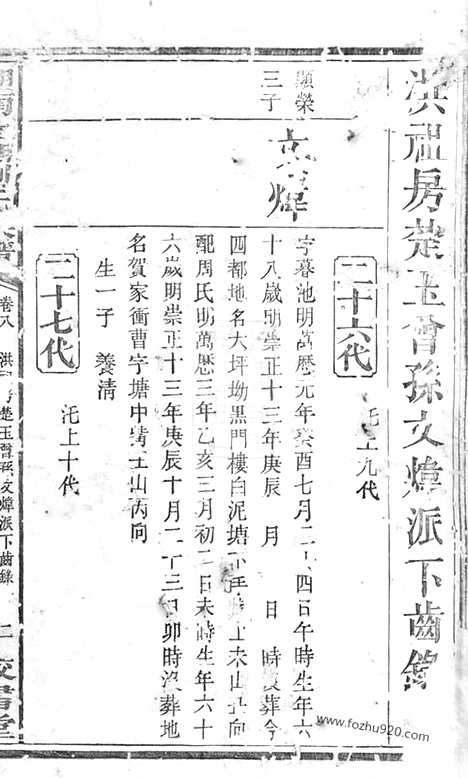 洪祖房楚玉會孫文煒派下齒錄
二十六代
托上九代
顯榮三子
文煒
字暮池明萬歷元年癸酉七月二十四日午時生年六
十八歲明崇正十三年庚辰 月 日 時歿葬今
四都地名大坪坳黑門樓白泥塘
土未山丑向
配周氏明萬歷三年乙亥三月初二日未時生年六十
六歲明崇正十三年庚辰十月二十三日卯時沒葬地
名賀家衝曹字塘中嘴壬山丙向
生一子 養清
二十七代
托上十代
卷八 洪祖房楚玉會孫文煒派下齒錄
www.fozhu920.com